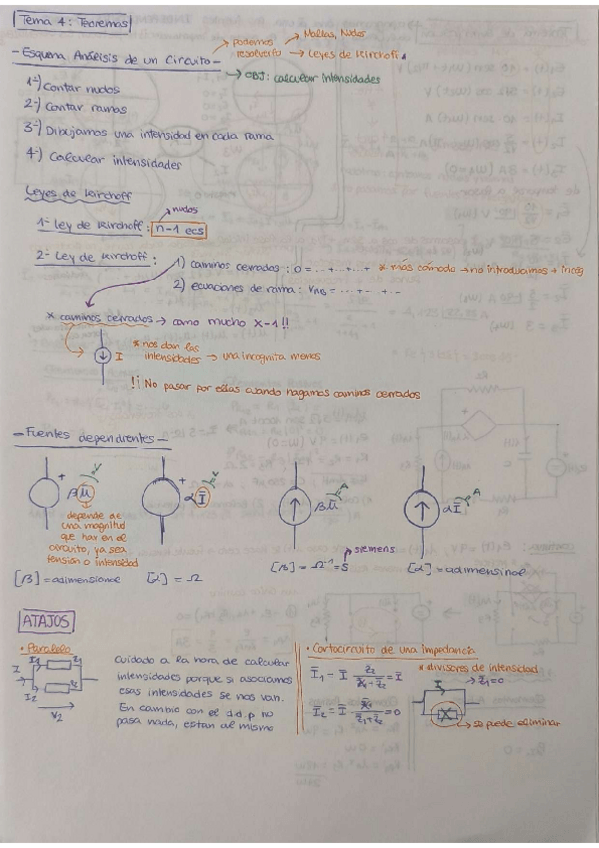 Tema 4: Teoremas
- Esquema Análisis de un Circuito -
podemos resolverlo
→ Mallas, Nudos
→ Leyes de Kirchoff
→ OBJ: calcular intensidades
1-) Contar nudos
2-) Contar ramas
3-) Dibujamos una intensidad en cada rama
4-) Calcular intensidades
Leyes de Kirchoff
nudos
1- Ley de Kirchoff: n-1 ecs
2- Ley de Kirchoff:
1) caminos cerrados: 0 = ...+...+...+ * más cómodo → no introducimos + incóg
2) ecuaciones de rama: VAB = ...+...+...
* caminos cerrados → como mucho x-1!!
I
* nos dan las
intensidades → una incognita menos
!¡ No pasar por ellas cuando hagamos caminos cerrados
- Fuentes dependientes -
+ βū V
+ αĪ
βū A
αĪ A
depende de
una magnitud
que hay en el
circuito, ya sea
tensión o intensidad
[β] = adimensional
[α] = Ω
[β] = Ω⁻¹ = S
siemens
[α] = adimensional
ATAJOS
• Paralelo
I
I1
I2
V2
Cuidado a la hora de calcular
intensidades porque si asociamos
esas intensidades se nos van.
En cambio con el d.d.p no
pasa nada, estan al mismo
• Cortocircuito de una impedancia
* divisores de intensidad
→ z̄1=0
Ī1 = Ī z̄2/(z̄1+z̄2) = Ī
Ī2 = Ī z̄1/(z̄1+z̄2) = 0
→ se puede eliminar